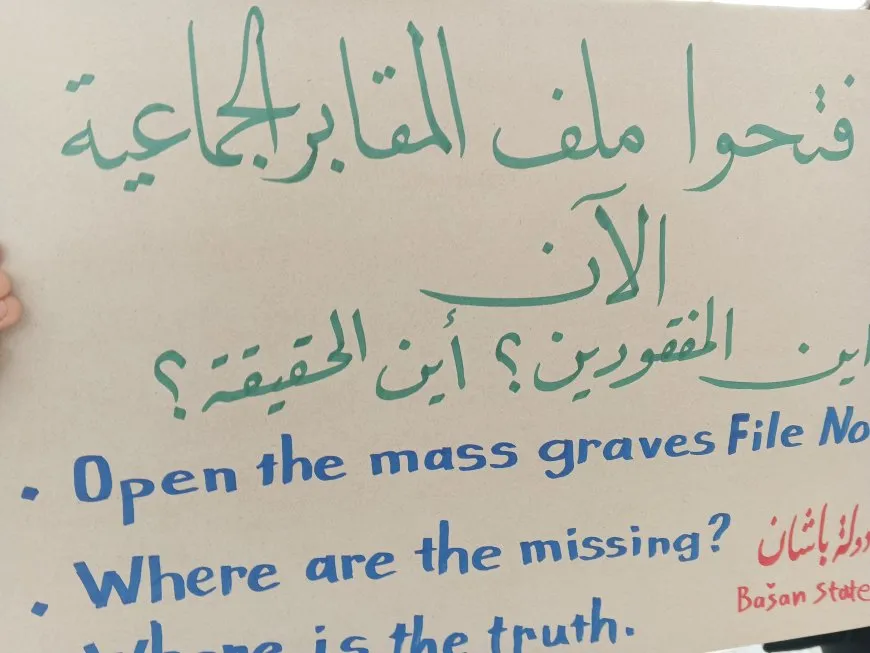 فتحوا ملف المقابر الجماعية
الآن
اين المفقودين؟ أين الحقيقة؟
• Open the mass graves File No
• Where are the missing?
دولة باشان
Bašan State
Where is the truth.